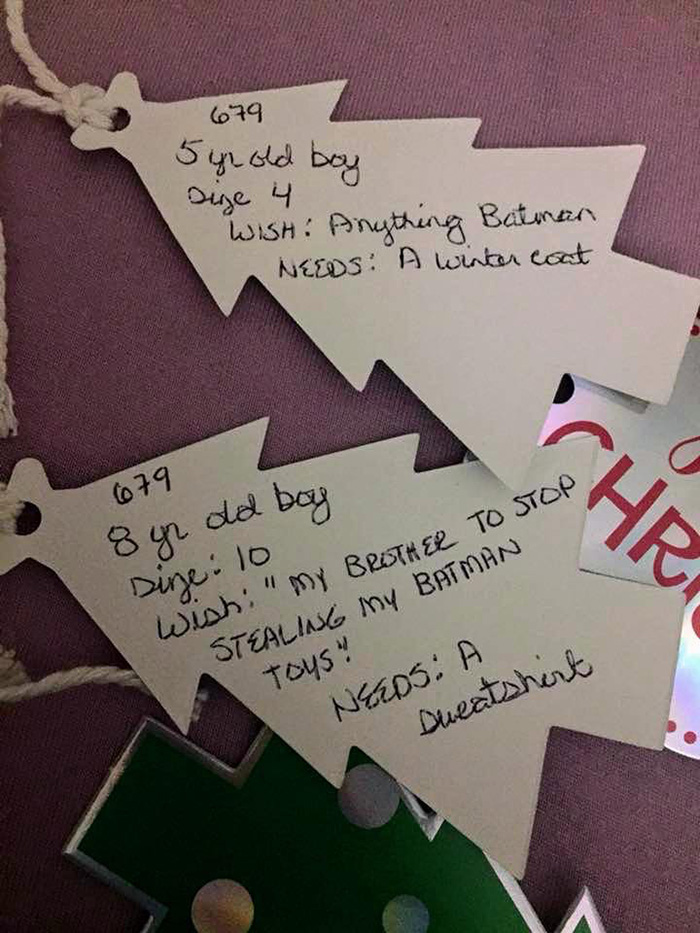 679
5 yr old boy
Size 4
WISH: Anything Batman
NEEDS: A winter coat
679
8 yr old boy
Size: 10
Wish: "MY BROTHER TO STOP
STEALING MY BATMAN
TOYS"
NEEDS: A
Sweatshirt